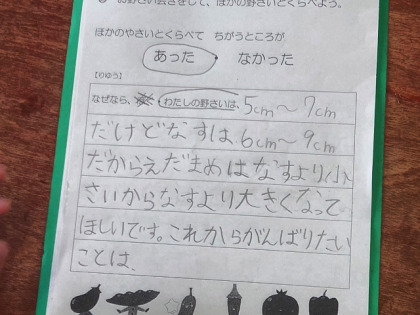 野さい会ぎをして、ほかの野さいとくらべよう。
ほかのやさいとくらべて ちがうところが
あった ・ なかった
【りゆう】
なぜなら、わたしの野さいは、5cm〜7cm
だけどなすは6cm〜9cm
だからえだまめはなすより小
さいからなすより大きくなって
ほしいです。これからがんばりたい
ことは、